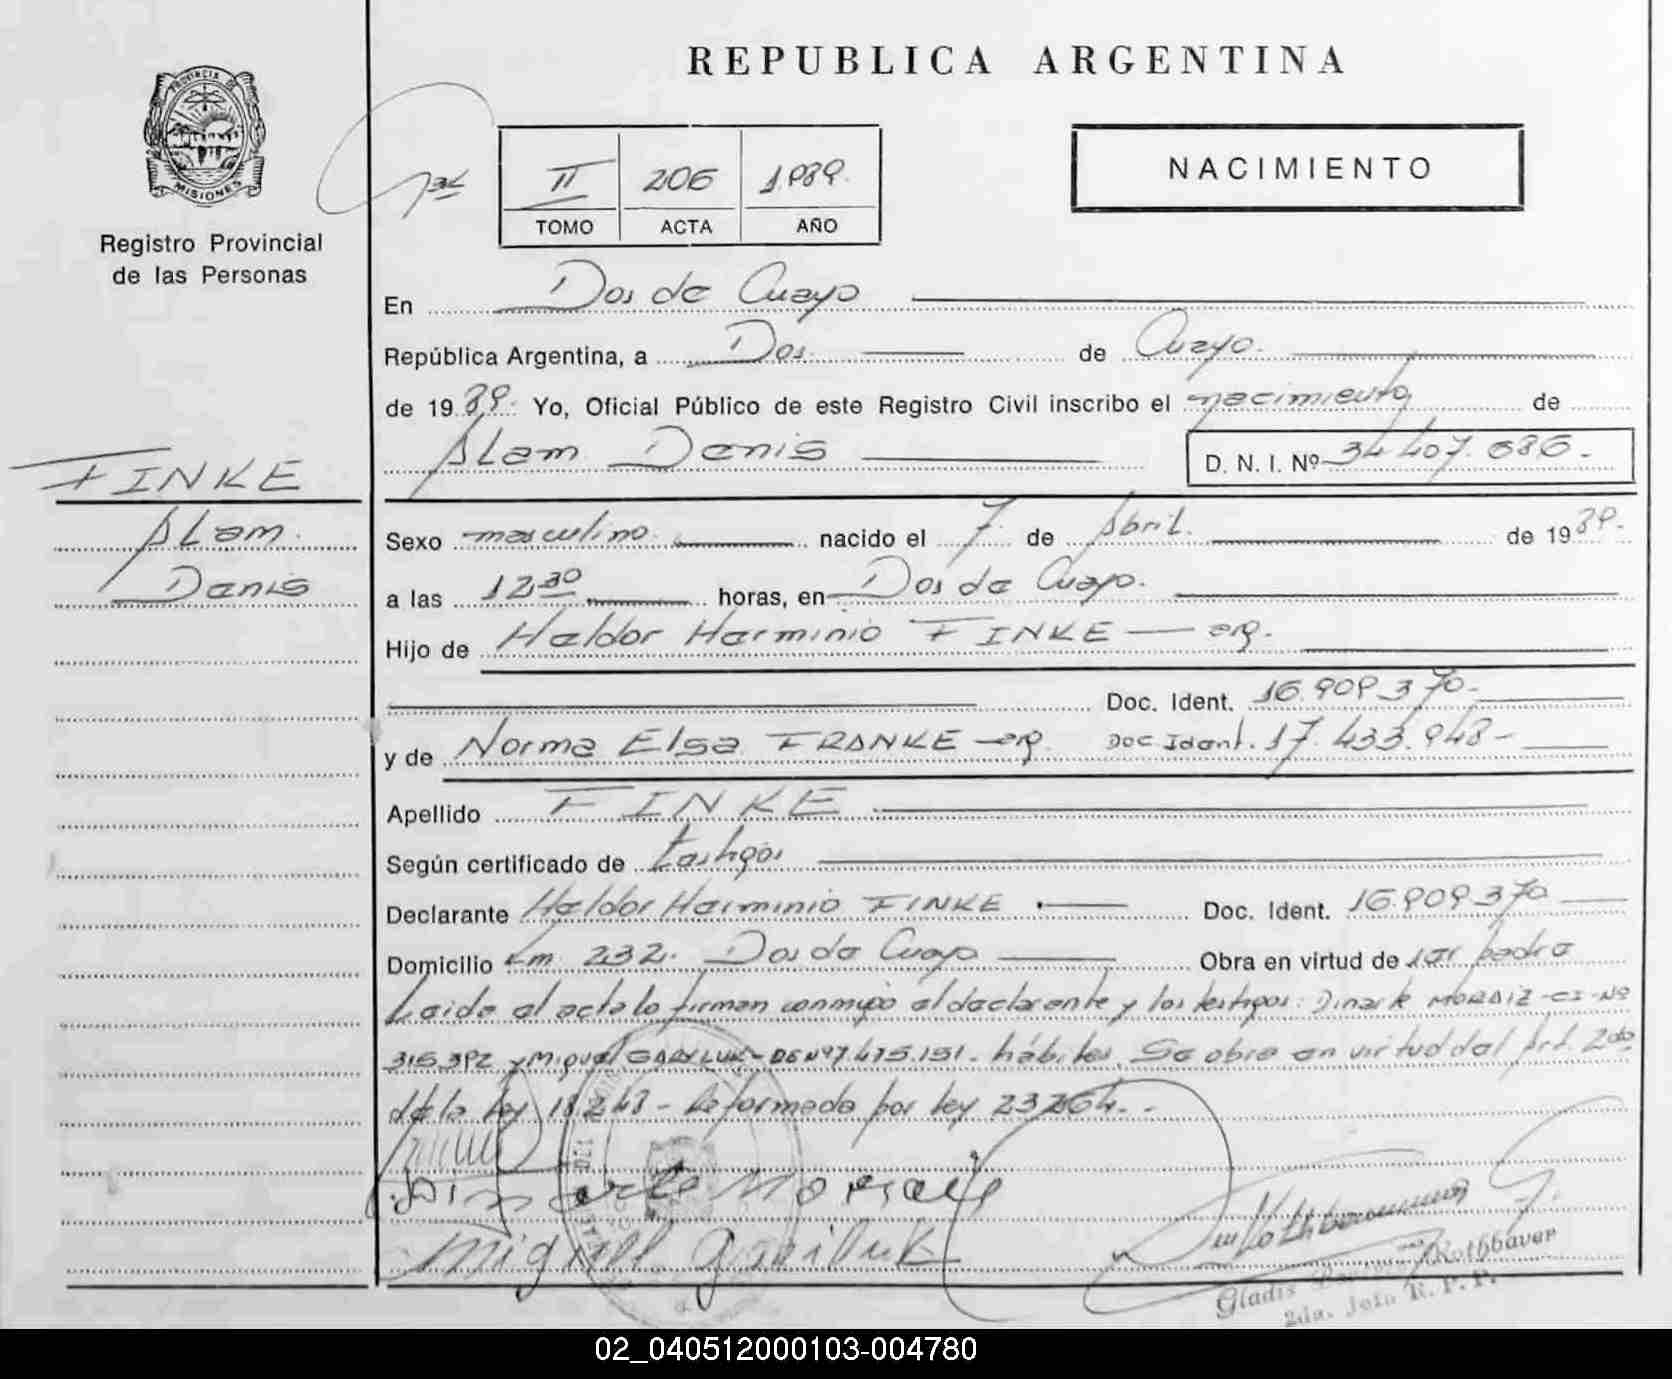 REPUBLICA ARGENTINA
PROVINCIA DE
MISIONES
Registro Provincial
de las Personas
II 206 1989.
TOMO ACTA AÑO
NACIMIENTO
En Dos de Mayo
República Argentina, a Dos de Mayo.
de 1989. Yo, Oficial Público de este Registro Civil inscribo el nacimiento de
Alam Denis D. N. I. Nº 34.407.686.-
FINKE
Alam.
Denis
Sexo masculino nacido el 7 de Abril. de 1989.
a las 12 30 horas, en Dos de Mayo.
Hijo de Heldor Herminio FINKE — arg.
Doc. Ident. 16.909.370-
y de Norma Elsa FRANKE — arg. Doc Ident. 17.433.948-
Apellido FINKE
Según certificado de testigos
Declarante Heldor Herminio FINKE Doc. Ident. 16.909.370
Domicilio Km 232. Dos de Mayo Obra en virtud de ser padre
Leida el acta lo firman conmigo el declarante y los testigos: Dinarte MORAIZ-CI-Nº
315.392 y Miguel GARYLUK-DENº7.475.151. hábiles. Se obra en virtud del Art. 2do
de la ley 18248- Reformado por ley 23264.-
Miguel gariluk
Gladis Rothbauer
2da. Jefa R. P. P.
02_040512000103-004780